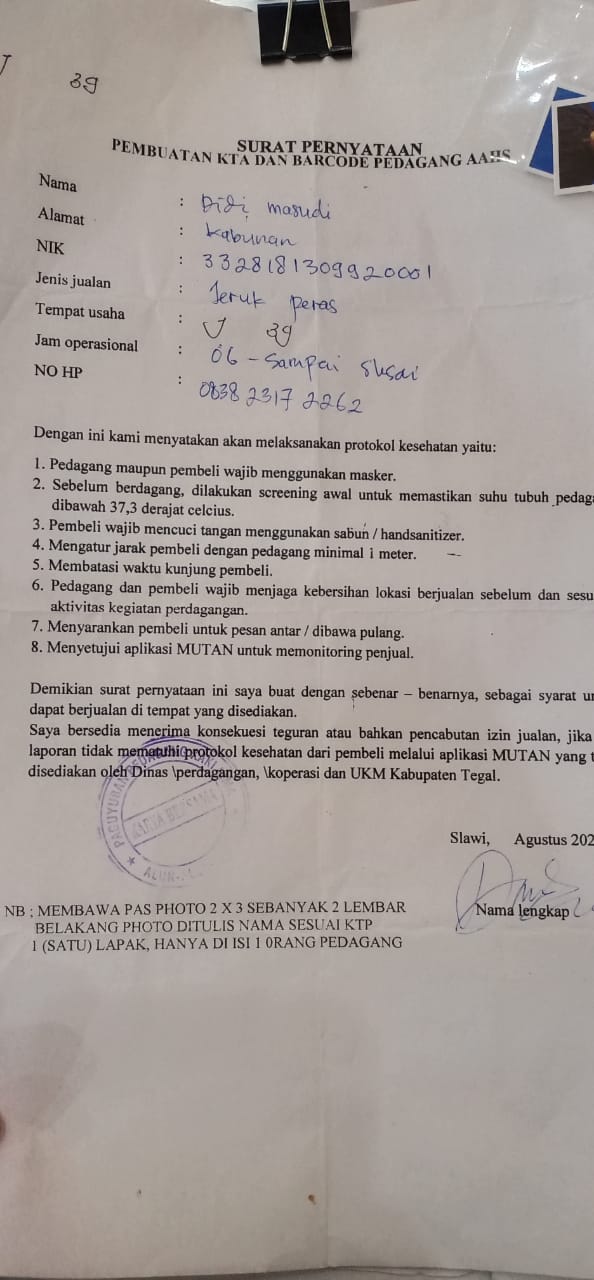 J 39
SURAT PERNYATAAN
PEMBUATAN KTA DAN BARCODE PEDAGANG AAHS
Nama : Didi masudi
Alamat : Kabunan
NIK : 3328181309920001
Jenis jualan : Jeruk peras
Tempat usaha : J 39
Jam operasional : 06 - Sampai slsai
NO HP : 0838 2317 2262
Dengan ini kami menyatakan akan melaksanakan protokol kesehatan yaitu:
1. Pedagang maupun pembeli wajib menggunakan masker.
2. Sebelum berdagang, dilakukan screening awal untuk memastikan suhu tubuh pedaga
dibawah 37,3 derajat celcius.
3. Pembeli wajib mencuci tangan menggunakan sabun / handsanitizer.
4. Mengatur jarak pembeli dengan pedagang minimal 1 meter.
5. Membatasi waktu kunjung pembeli.
6. Pedagang dan pembeli wajib menjaga kebersihan lokasi berjualan sebelum dan sesu
aktivitas kegiatan perdagangan.
7. Menyarankan pembeli untuk pesan antar / dibawa pulang.
8. Menyetujui aplikasi MUTAN untuk memonitoring penjual.
Demikian surat pernyataan ini saya buat dengan sebenar – benarnya, sebagai syarat un
dapat berjualan di tempat yang disediakan.
Saya bersedia menerima konsekuesi teguran atau bahkan pencabutan izin jualan, jika
laporan tidak mematuhi protokol kesehatan dari pembeli melalui aplikasi MUTAN yang t
disediakan oleh Dinas \perdagangan, \koperasi dan UKM Kabupaten Tegal.
PAGUYUBAN
KARYA BERSAMA
ALUN
Slawi, Agustus 202
Nama lengkap
NB ; MEMBAWA PAS PHOTO 2 X 3 SEBANYAK 2 LEMBAR
BELAKANG PHOTO DITULIS NAMA SESUAI KTP
1 (SATU) LAPAK, HANYA DI ISI 1 0RANG PEDAGANG